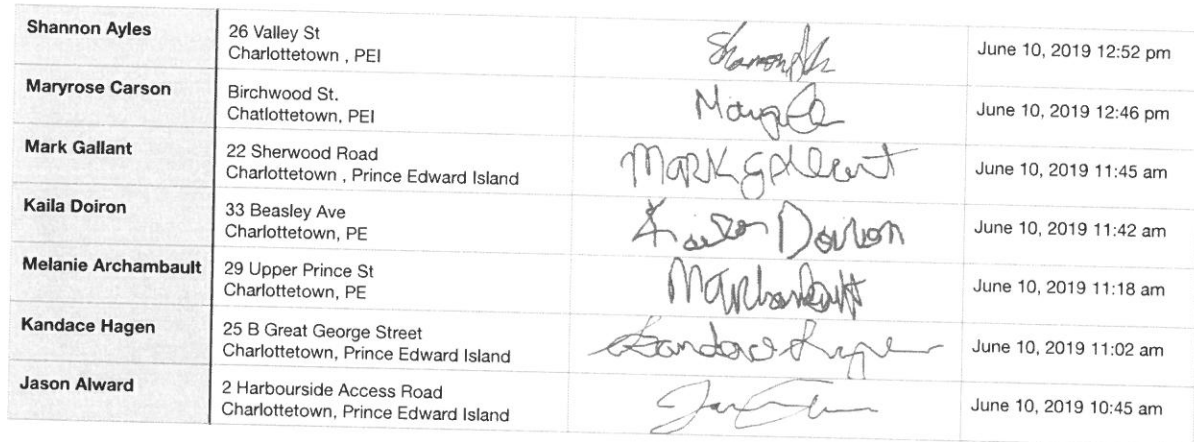 Shannon Ayles
26 Valley St
Charlottetown , PEI
June 10, 2019 12:52 pm
Maryrose Carson
Birchwood St.
Chatlottetown, PEI
June 10, 2019 12:46 pm
Mark Gallant
22 Sherwood Road
Charlottetown , Prince Edward Island
Mark Gallant
June 10, 2019 11:45 am
Kaila Doiron
33 Beasley Ave
Charlottetown, PE
Doiron
June 10, 2019 11:42 am
Melanie Archambault
29 Upper Prince St
Charlottetown, PE
June 10, 2019 11:18 am
Kandace Hagen
25 B Great George Street
Charlottetown, Prince Edward Island
June 10, 2019 11:02 am
Jason Alward
2 Harbourside Access Road
Charlottetown, Prince Edward Island
June 10, 2019 10:45 am